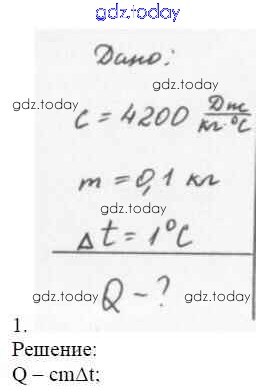 gdz.today
Дано:
gdz.today gdz.today
c = 4200 Дж/кг·°C
m = 0,1 кг
gdz.today gdz.today
Δt = 1°C
Q – ?
gdz.today gdz.today
1.
Решение:
Q – cmΔt;